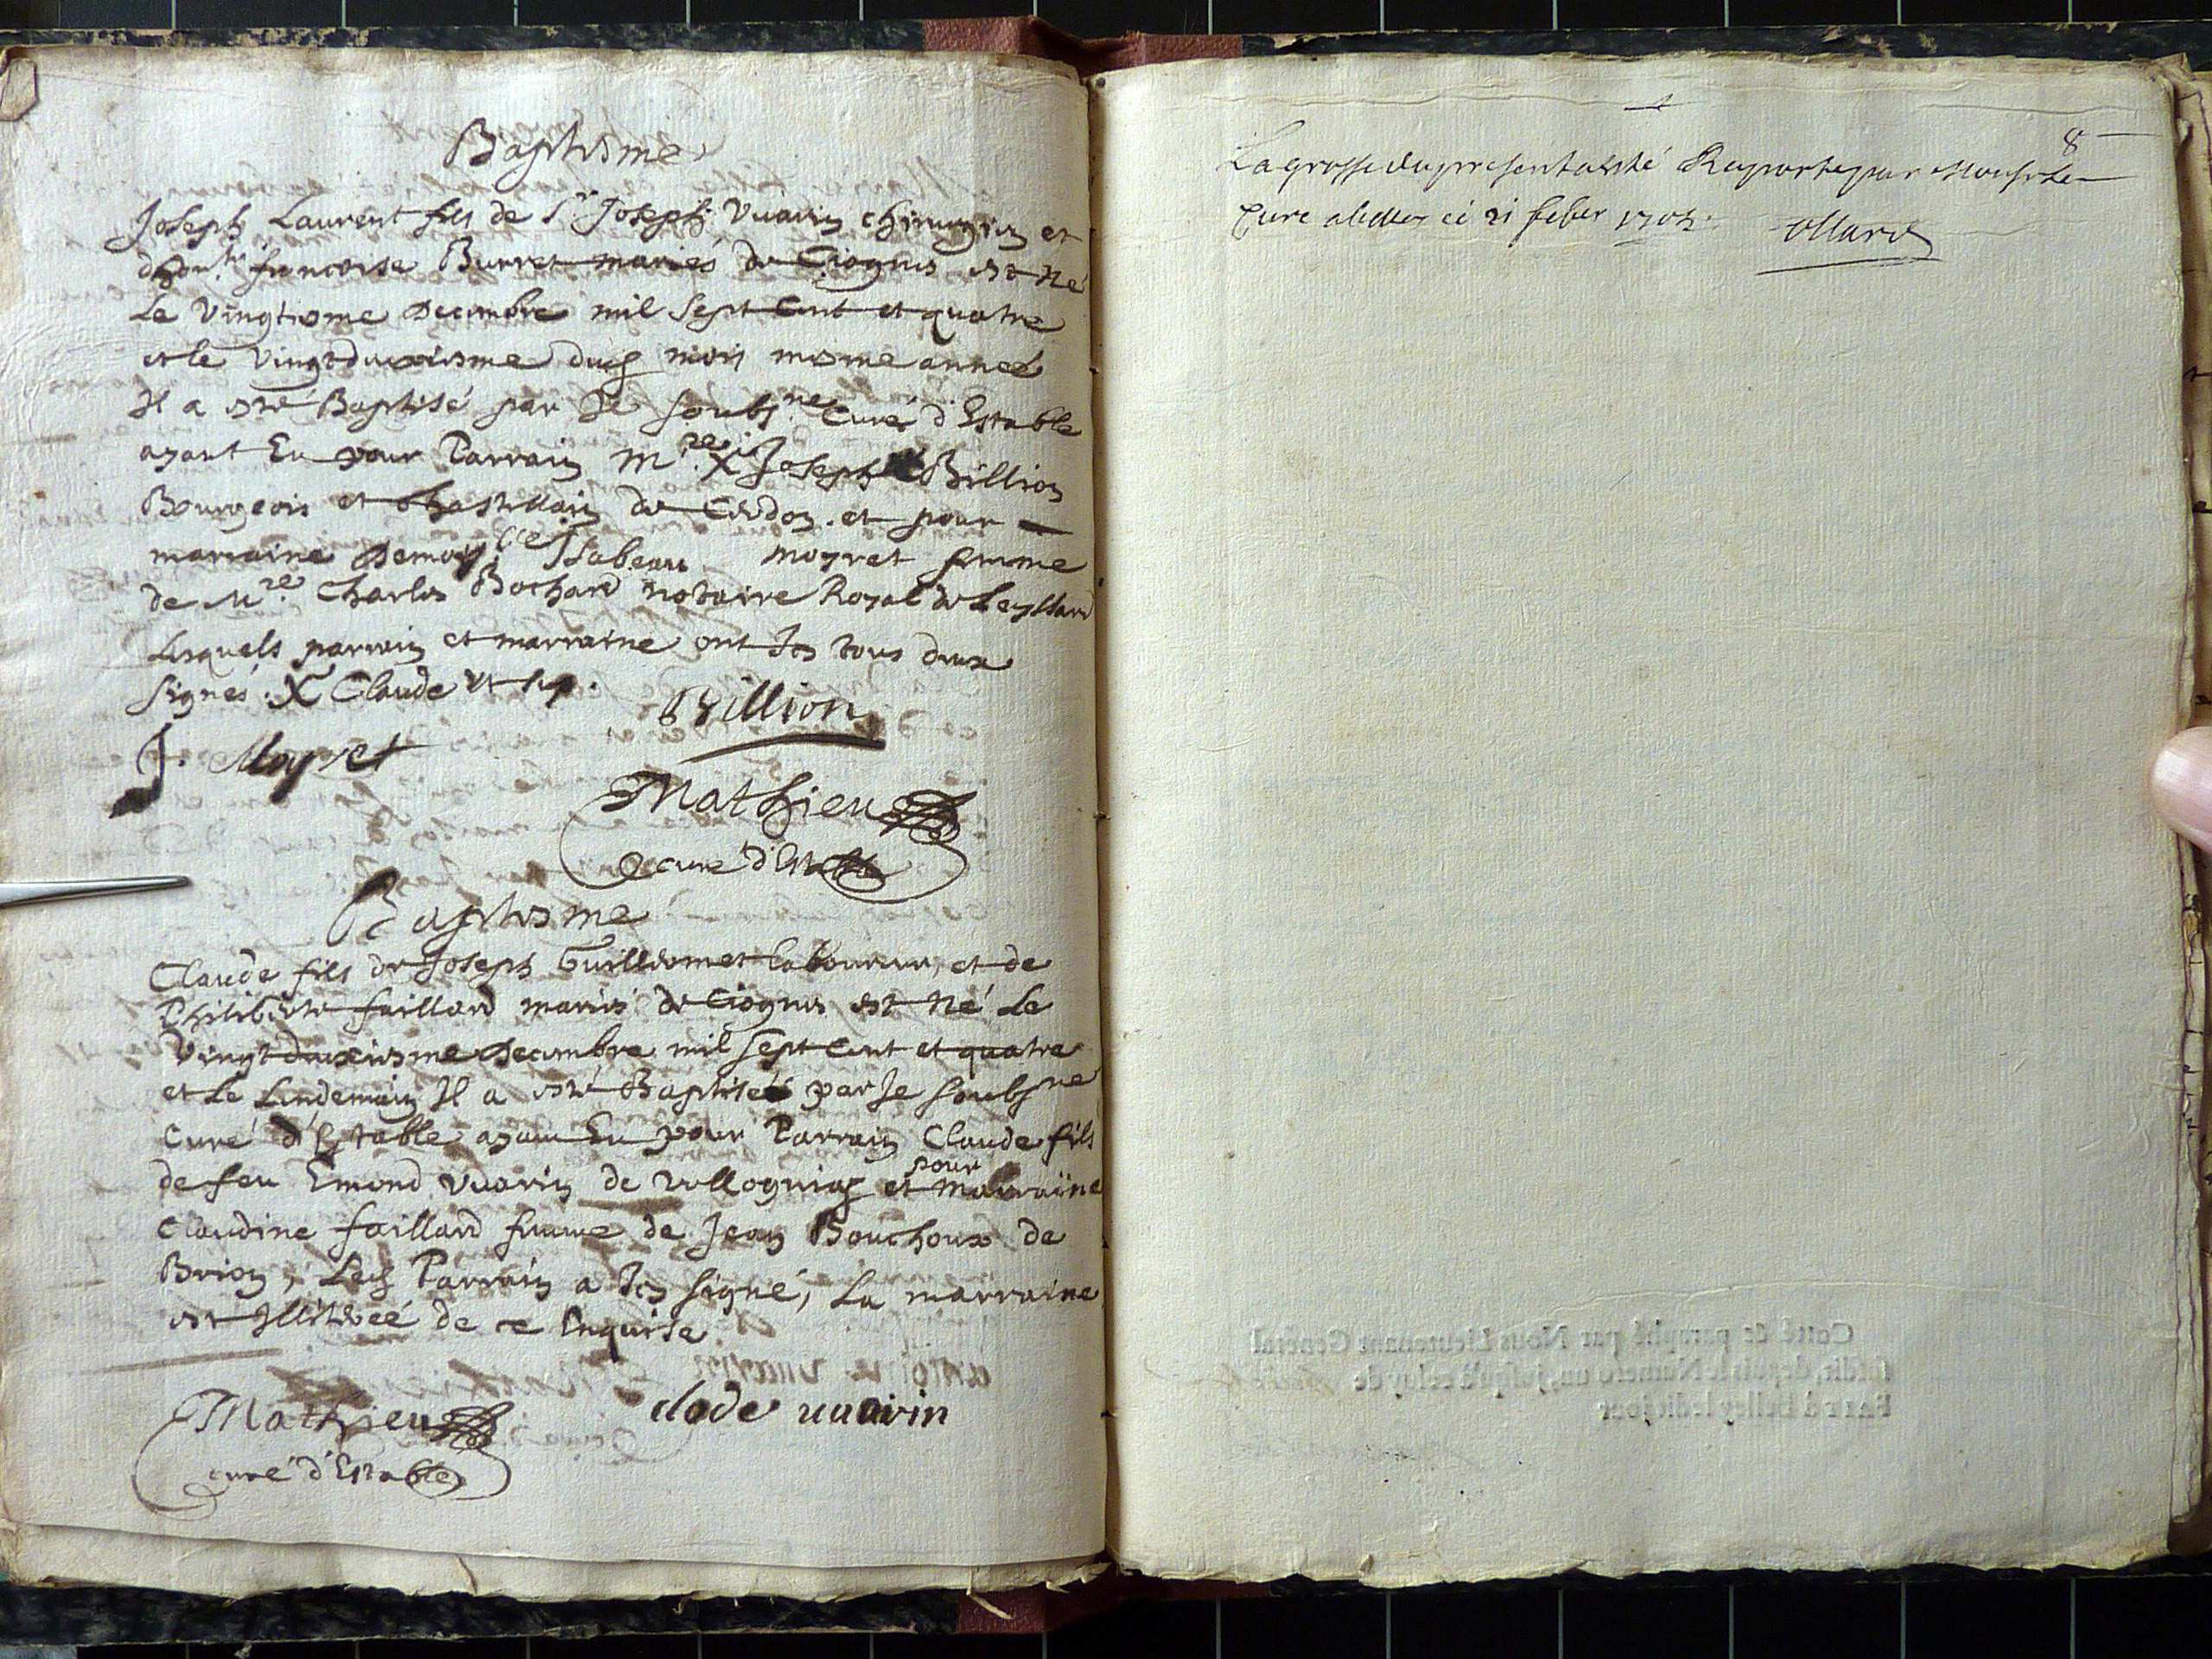 Baptesme
Joseph Laurent fils de Sr Joseph Vuarin chirurgien et
francoise Burret mariés de Ciognes est né
Le Vingtiesme decembre mil sept cent et quatre
et le vingtdeuxiesme dud mois mesme année
Il a esté Baptisé par Je soubsné Curé d'Estable
ayant Eu pour Parrain Mre X Joseph Billion
Bourgeois et chastellain de Cerdon. et pour
marraine Demoylle Isabeau moyret femme
de Mre Charles Bochard notaire Royal de Leyssard
Lesquels parrain et marraine ont Icy tous deux
signés. X Claude
Billion
J. Moyret
Mathieu
curé d'Estable
Baptesme
Claude fils de Joseph Guilliermet laboureur, et de
Philiberte faillard mariés de Ciognes est né Le
Vingtdeuxiesme decembre mil sept cent et quatre
et Le Lendemain Il a esté Baptisé par Je soubsné
Curé d'Estable ayant Eu pour Parrain Claude fils
de feu Emond Vuarin de Vollogniaz et pour marraine
Claudine faillard femme de Jean Bouchoux de
Brion, Led Parrain a Icy signé, La marraine
est Illiterée de ce Enquise
Mathieu
clode uuarin
curé d'Estable
8
La grosse du present a esté Raportee par Monsr Le
Curé a belley ce 21 feber 1705.
Ollard
Cotté & paraphé par Nous Lieutenant General
susdit, depuis le Numero un, jusqu'à celuy de
Fait à Belley ledit jour